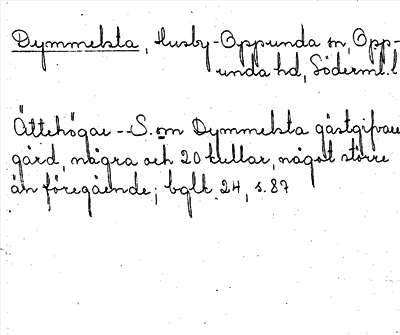 Dymmelsta, Husby-Oppunda sn, Opp-
unda hd, Söderml. l
Ättehögar -- S. om Dymmelsta gästgifvare
gård, några och 20 kullar, något större
än föregående; bglt 24, s. 87